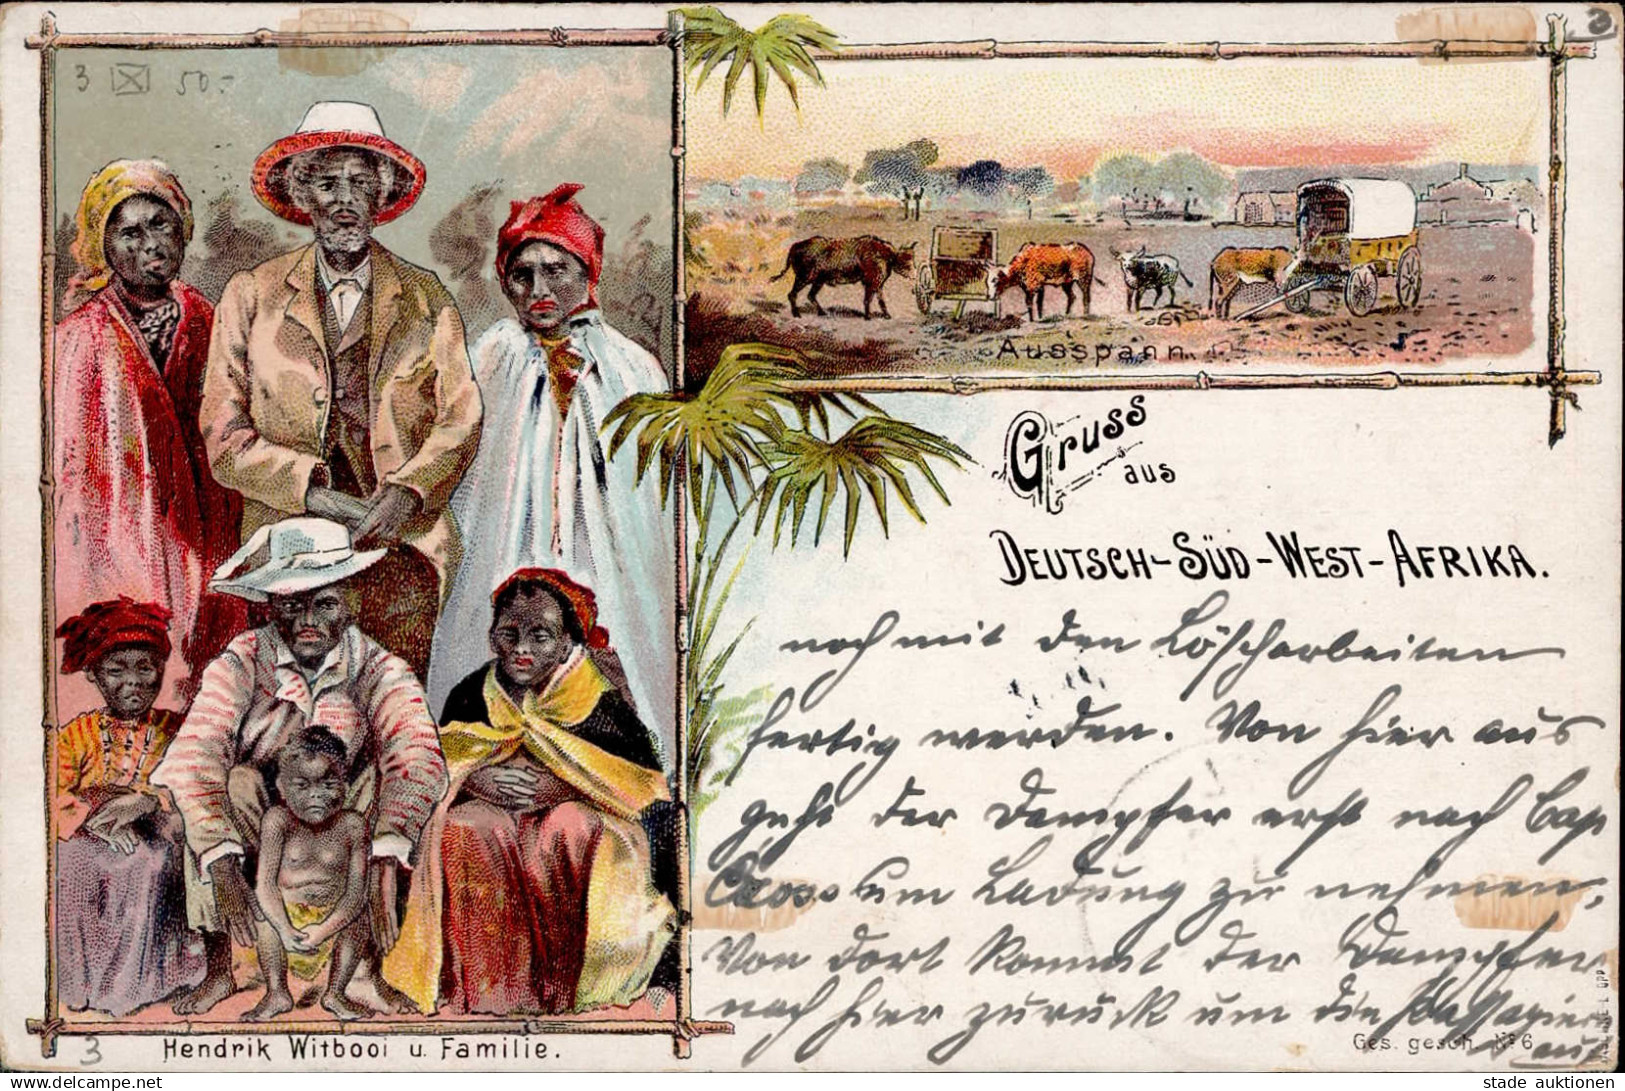 3 ☒ 50.-
3
Ausspann.
Gruss
aus
DEUTSCH-SÜD-WEST-AFRIKA.
noch mit den Löscharbeiten
fertig werden. Von hier aus
geht der Dampfer erst nach Cap
Cross um Ladung zu nehmen,
Von dort kommt der Dampfer
nach hier zurück um die Passagiere
auf
Ges. gesch. No 6
3
Hendrik Witbooi u. Familie.
stade auktionen